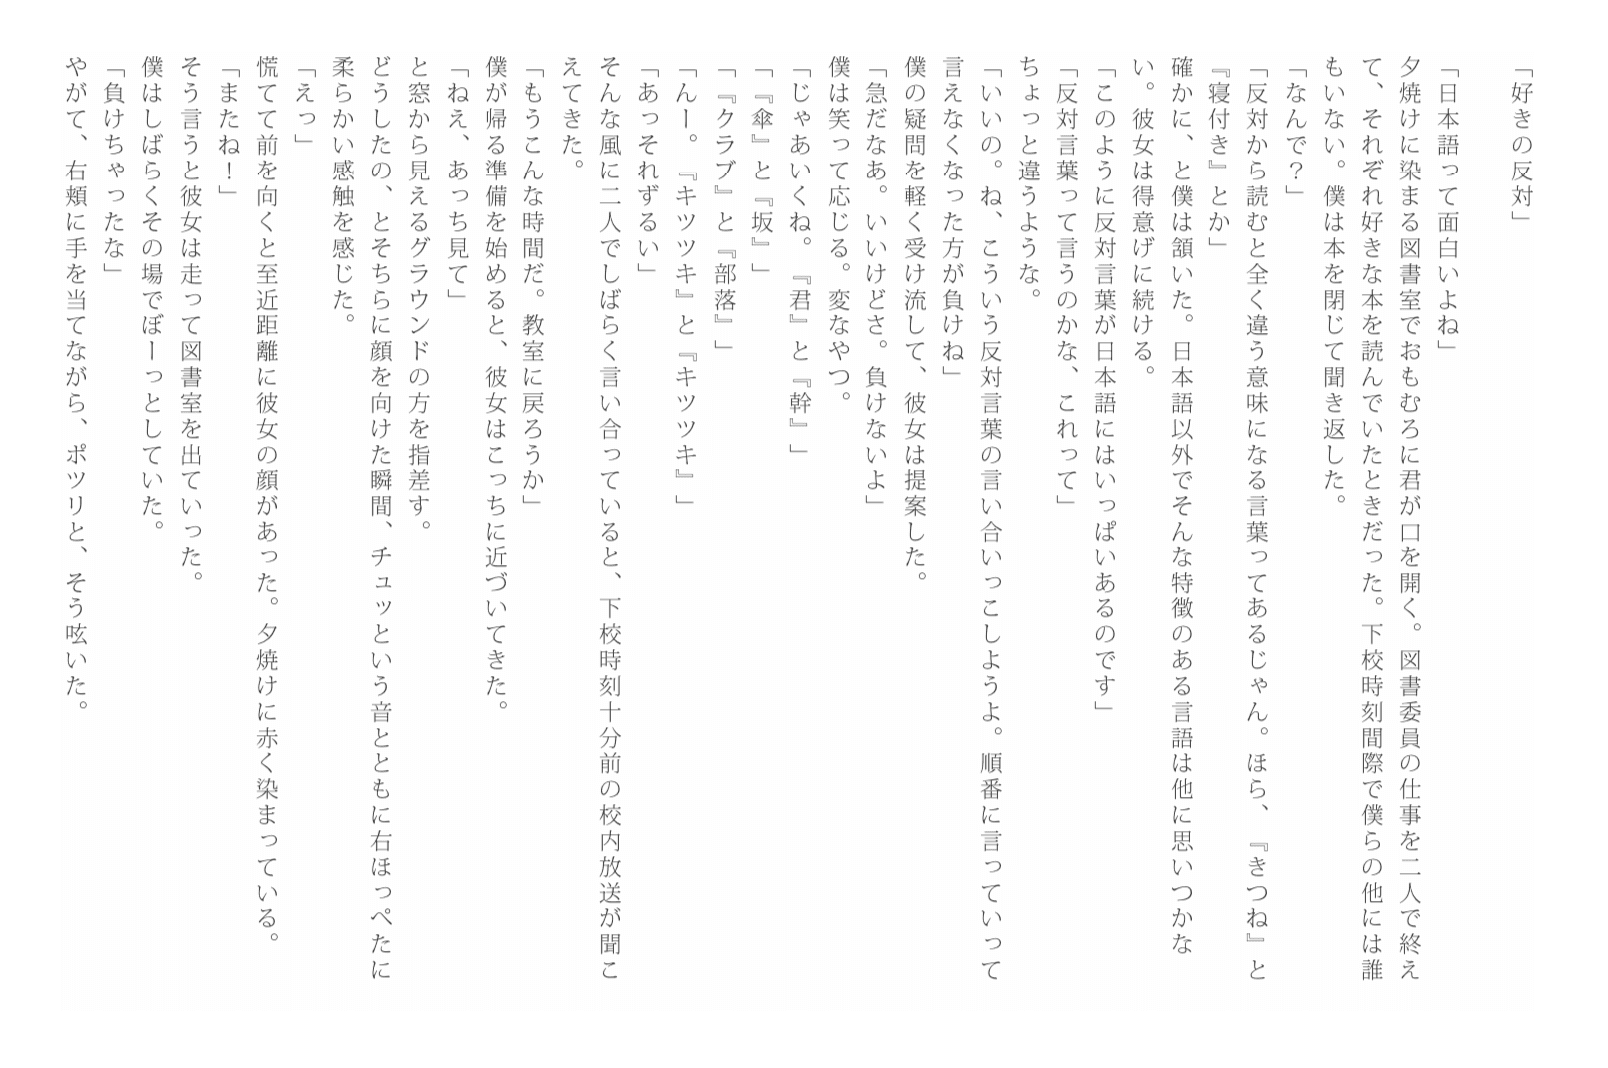 「好きの反対」
「日本語って面白いよね」
夕焼けに染まる図書室でおもむろに君が口を開く。図書委員の仕事を二人で終え
て、それぞれ好きな本を読んでいたときだった。下校時刻間際で僕らの他には誰
もいない。僕は本を閉じて聞き返した。
「なんで？」
「反対から読むと全く違う意味になる言葉ってあるじゃん。ほら、『きつね』と
『寝付き』とか」
確かに、と僕は頷いた。日本語以外でそんな特徴のある言語は他に思いつかな
い。彼女は得意げに続ける。
「このように反対言葉が日本語にはいっぱいあるのです」
「反対言葉って言うのかな、これって」
ちょっと違うような。
「いいの。ね、こういう反対言葉の言い合いっこしようよ。順番に言っていって
言えなくなった方が負けね」
僕の疑問を軽く受け流して、彼女は提案した。
「急だなあ。いいけどさ。負けないよ」
僕は笑って応じる。変なやつ。
「じゃあいくね。『君』と『幹』」
「『傘』と『坂』」
「『クラブ』と『部落』」
「んー。『キツツキ』と『キツツキ』」
「あっそれずるい」
そんな風に二人でしばらく言い合っていると、下校時刻十分前の校内放送が聞こ
えてきた。
「もうこんな時間だ。教室に戻ろうか」
僕が帰る準備を始めると、彼女はこっちに近づいてきた。
「ねえ、あっち見て」
と窓から見えるグラウンドの方を指差す。
どうしたの、とそちらに顔を向けた瞬間、チュッという音とともに右ほっぺたに
柔らかい感触を感じた。
「えっ」
慌てて前を向くと至近距離に彼女の顔があった。夕焼けに赤く染まっている。
「またね！」
そう言うと彼女は走って図書室を出ていった。
僕はしばらくその場でぼーっとしていた。
「負けちゃったな」
やがて、右頬に手を当てながら、ポツリと、そう呟いた。